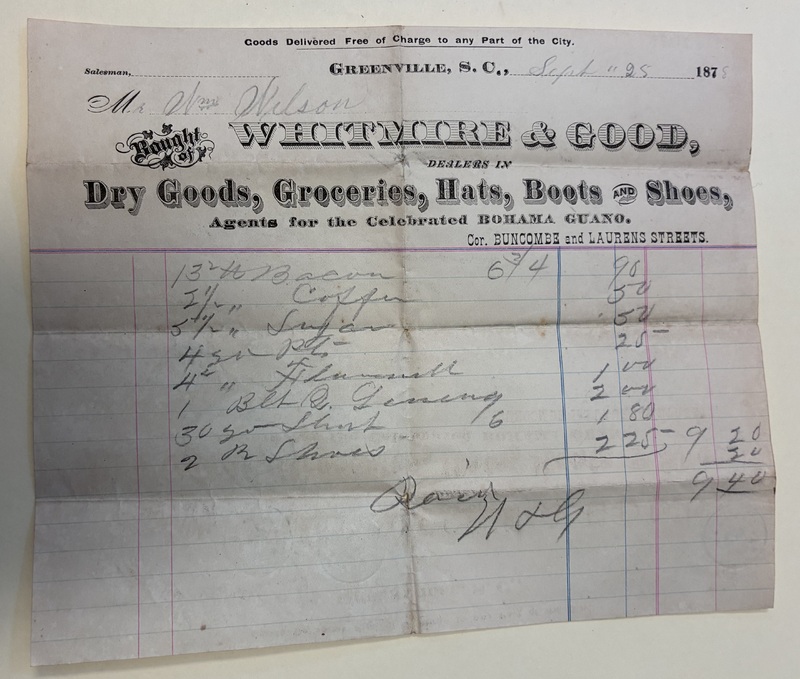 Goods Delivered Free of Charge to any Part of the City.
Salesman, GREENVILLE, S. C., Sept " 25 187
Mr Wm Wilson
Bought of WHITMIRE & GOOD,
DEALERS IN
Dry Goods, Groceries, Hats, Boots AND Shoes,
Agents for the Celebrated BOHAMA GUANO.
Cor. BUNCOMBE and LAURENS STREETS.
13 Bacon 6 3/4 90
" Coffee 50
5 1/2 " Sugar 50
4 25
4 " 1 00
1 2 00
30 6 1 80
2 Shoes 2 25 9 20
20
Paid 9 40
W & G